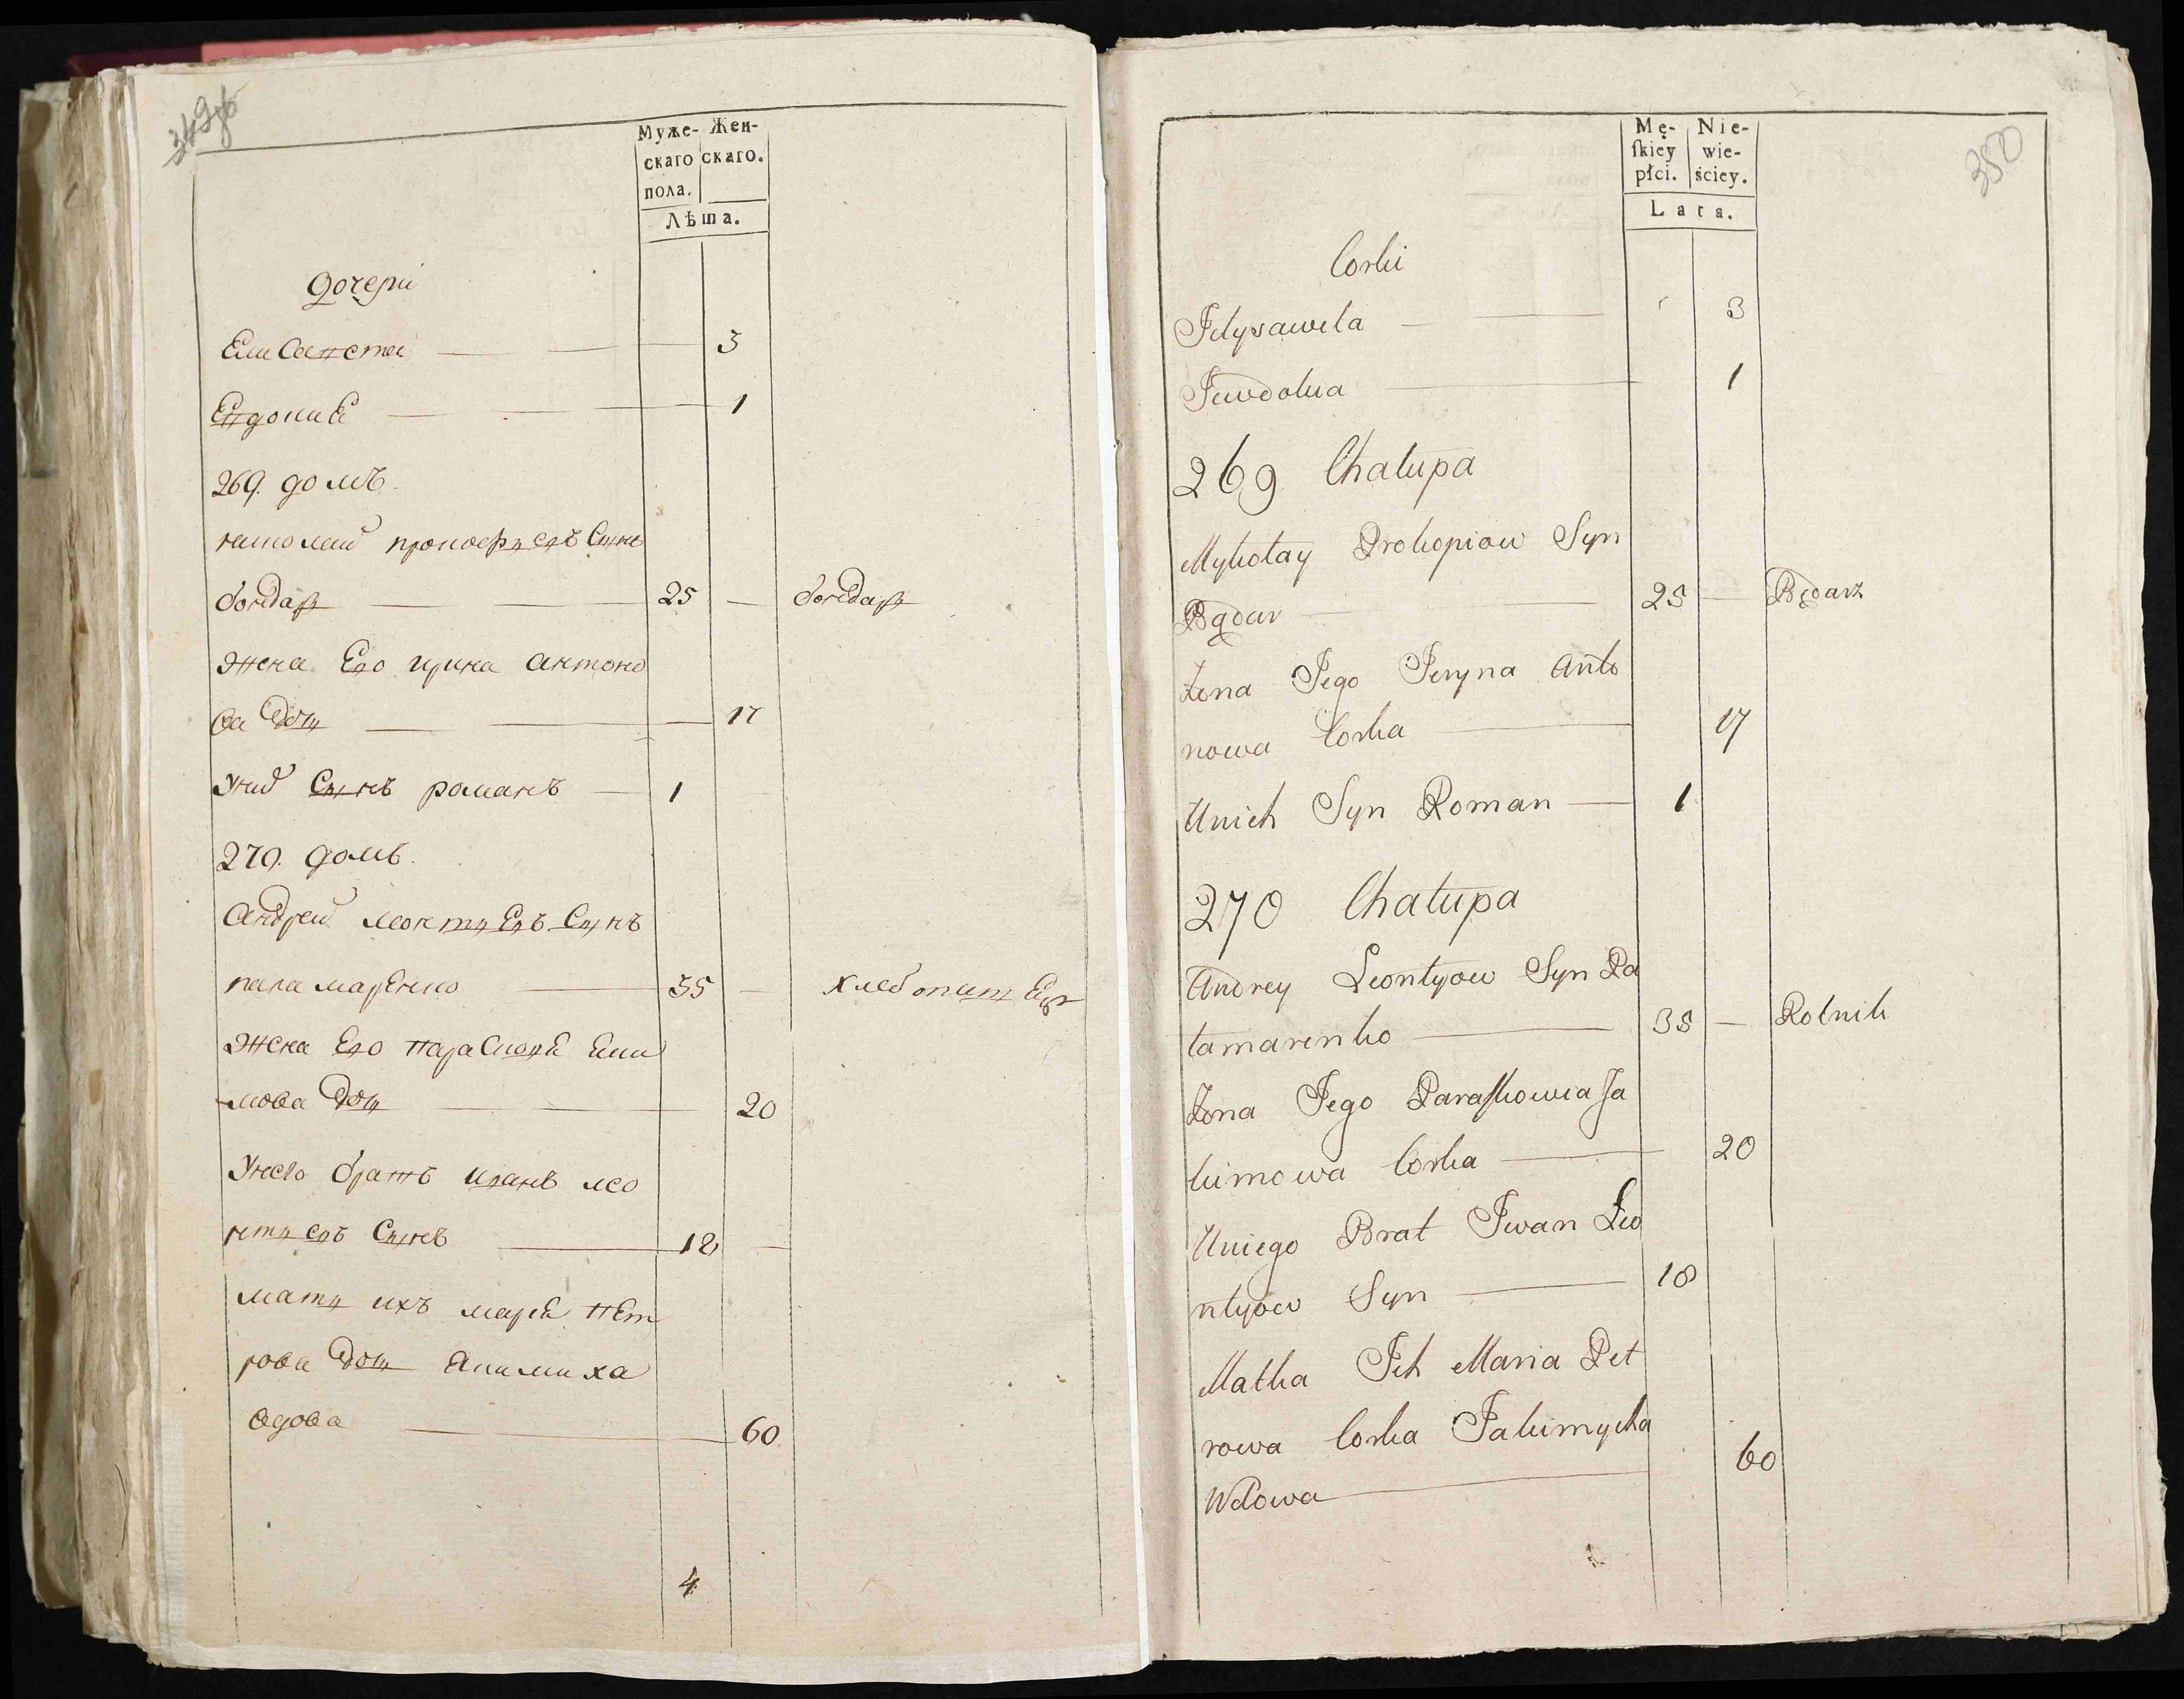 349об
Муже- Жен-
скаго скаго.
пола.
Лѣта.
дочери
Елисавета — 3
Евдокиѣ — 1
269. домъ.
николай прокофьевъ Сынъ
бондарь — 25 — бондарь
Жена Его ирина антоно
ва Дочь — 17
Унихъ Сынъ романъ — 1
270. домъ.
Андрей леонтьевъ Сынъ
паламаренко — 35 — хлебопашецъ
Жена Его парасковѣ Еки
мова Дочь — 20
Унего братъ иванъ лео
нтьевъ Сынъ — 18 —
мать ихъ марѣ пет
рова Дочь Якимиха
вдова — 60
4
350
Mę- Nie-
ſkiey wie-
płci. ściey.
Lata.
Corki
Jelysaweta — 3
Jewdokia — 1
269 Chałupa
Mykołay Prokopiow Syn
Bądar — 25 — Będarz
Żona Jego Jeryna Anto
nowa Corka — 17
Unich Syn Roman — 1
270 Chałupa
Andrey Leontyow Syn Pa
łamarenko — 35 — Rolnik
Żona Jego Paraſkowia Ja
kimowa Corka — 20
Uniego Brat Jwan Leo
ntyow Syn — 18
Matka Jch Maria Pet
rowa Corka Jakimycha
Wdowa — 60